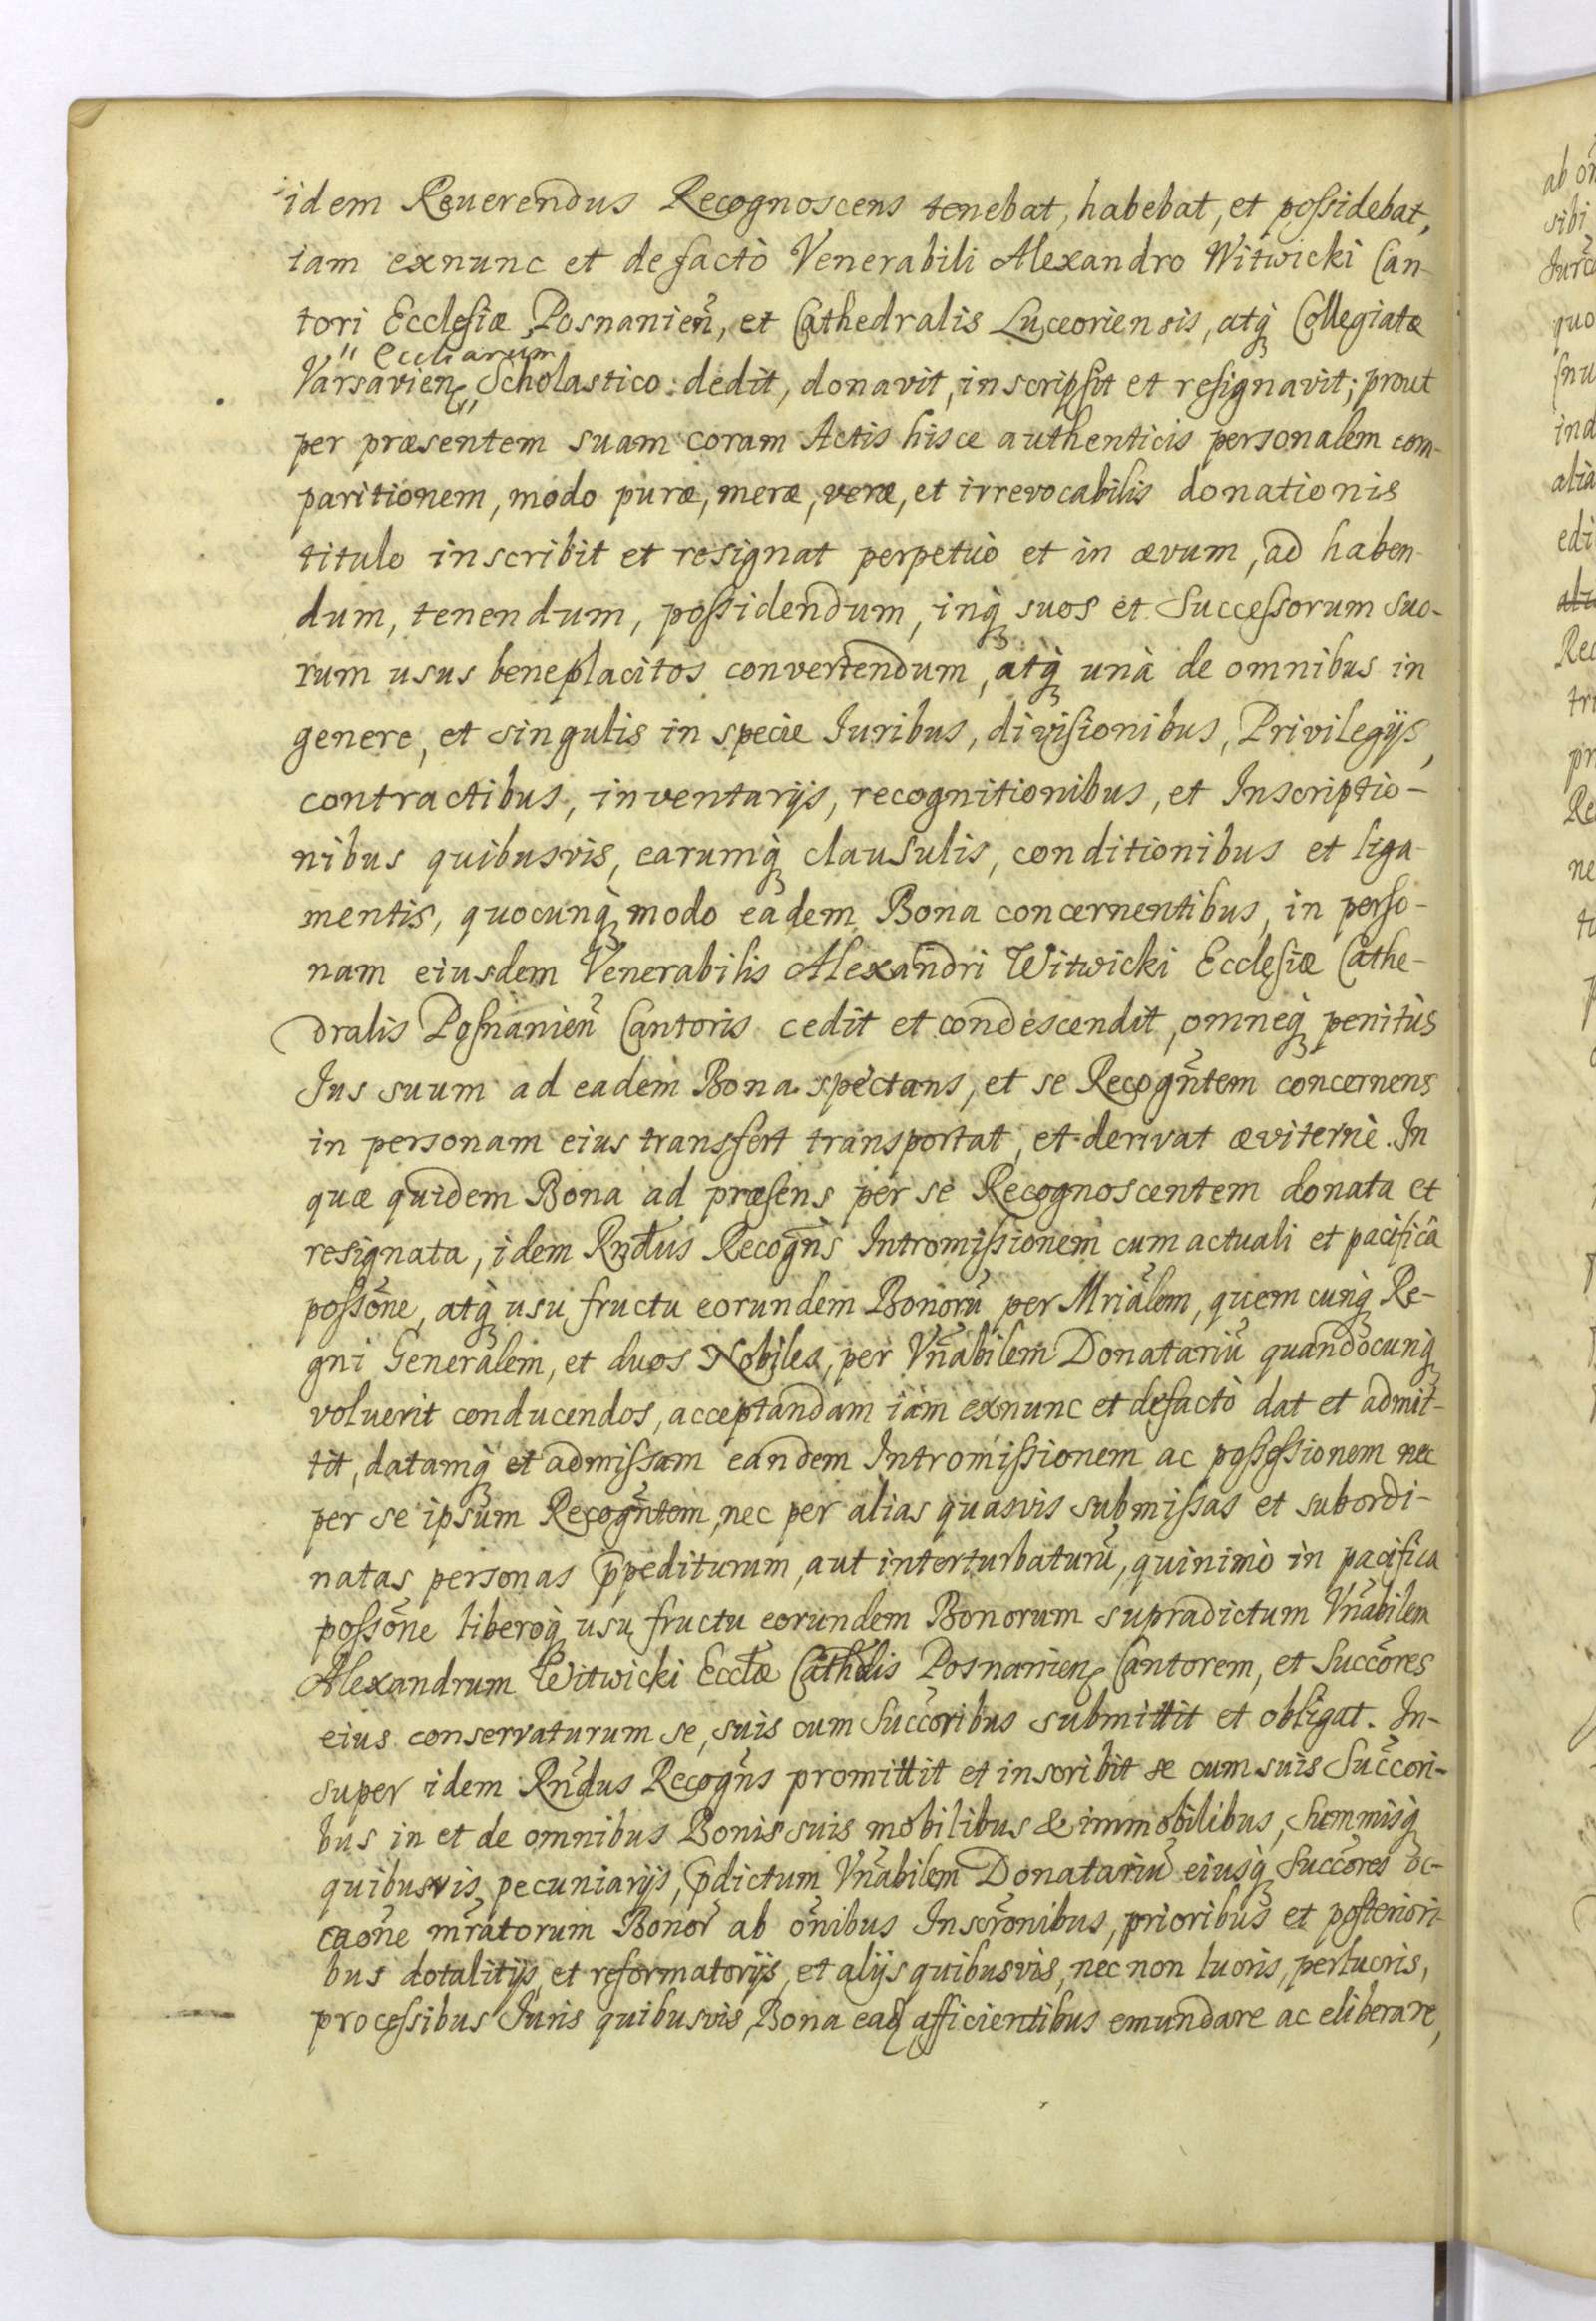 idem Reuerendus Recognoscens tenebat, habebat, et poſsidebat,
iam exnunc et defactò Venerabili Alexandro Witwicki Can-
tori Eccleſiæ Posnanien̄, et Cathedralis Luceoriensis, atq̀ Collegiatæ
" Eccliarum
Varsavien Scholastico dedit, donavit, inscripſit et reſignavit; prout
per præsentem suam coram Actis hisce authenticis personalem com-
paritionem, modo puræ, meræ, veræ, et irrevocabilis donationis
titulo inscribit et resignat perpetuò et in ævum, ad haben-
dum, tenendum, poſsidendum, inq̀ suos et Succeſsorum suo-
rum usus beneplacitos convertendum, atq̀ unà de omnibus in
genere, et singulis in specie Iuribus, diviſionibus, Privilegijs,
contractibus, inventarijs, recognitionibus, et Inscriptio-
nibus quibusvis, earumq̀ clausulis, conditionibus et liga-
mentis, quocunq̀ modo eadem Bona concernentibus, in perſo-
nam eiusdem Venerabilis Alexandri Witwicki Eccleſiæ Cathe-
dralis Poſnanien̄ Cantoris cedit et condescendit, omneq̀ penitùs
Ius suum ad eadem Bona spectans, et se Recogn̄tem concernens
in personam eius transfert transportat, et derivat æviternè. In
quæ quidem Bona ad præſens per se Recognoscentem donata et
resignata, idem Rndus Recogn̄s Intromiſsionem cum actuali et pacificâ
poſsōne, atq̀ usu fructu eorundem Bonorū per Mriālem, quemcunq̀ Re-
gni Generalem, et duos Nobiles, per Vn̄abilem Donatariū quandocunq̀
voluerit conducendos, acceptandam iam exnunc et defactò dat et admit-
tit, datamq̀ et admiſsam eandem Intromiſsionem ac poſseſsionem nec
per se ipsum Recogn̄tem, nec per alias quasvis submiſsas et subordi-
natas personas p̄pediturum, aut interturbaturū, quinimò in pacifica
poſsōne liberoq̀ usu fructu eorundem Bonorum supradictum Vn̄abilem
Alexandrum Witwicki Ecclæ Cathdlis Posnanien Cantorem, et Succōres
eius conservaturum se, suis cum Succōribus submittit et obligat. In-
super idem Rn̄dus Recogn̄s promittit et inscribit se cum suis Succōri-
bus in et de omnibus Bonis suis mobilibus & immobilibus, Summisq̀
quibusvis pecuniarijs, p̄dictum Vn̄abilem Donatariū eiusq̀ Succōres oc-
caōne mrātorum Bonor̄ ab ōnibus Inscrōnibus, prioribus et poſteriori-
bus dotalitijs, et reformatorijs, et alijs quibusvis, nec non lucris, perlucris,
proceſsibus Iuris quibusvis, Bona eaq̀ afficientibus emundare ac eliberare,